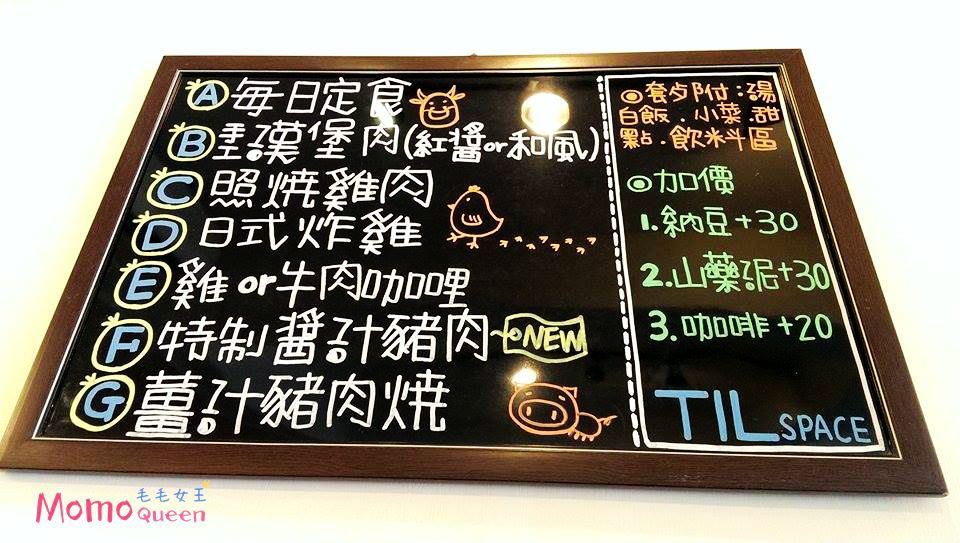 A 每日定食
B 手工漢堡肉(紅醬or和風)
C 照燒雞肉
D 日式炸雞
E 雞or牛肉咖哩
F 特制醬汁豬肉 NEW
G 薑汁豬肉燒
套歺附:湯
白飯.小菜.甜
點.飲料區
加價
1.納豆+30
2.山藥泥+30
3.咖啡+20
TIL SPACE
Momo 毛毛女王
Queen